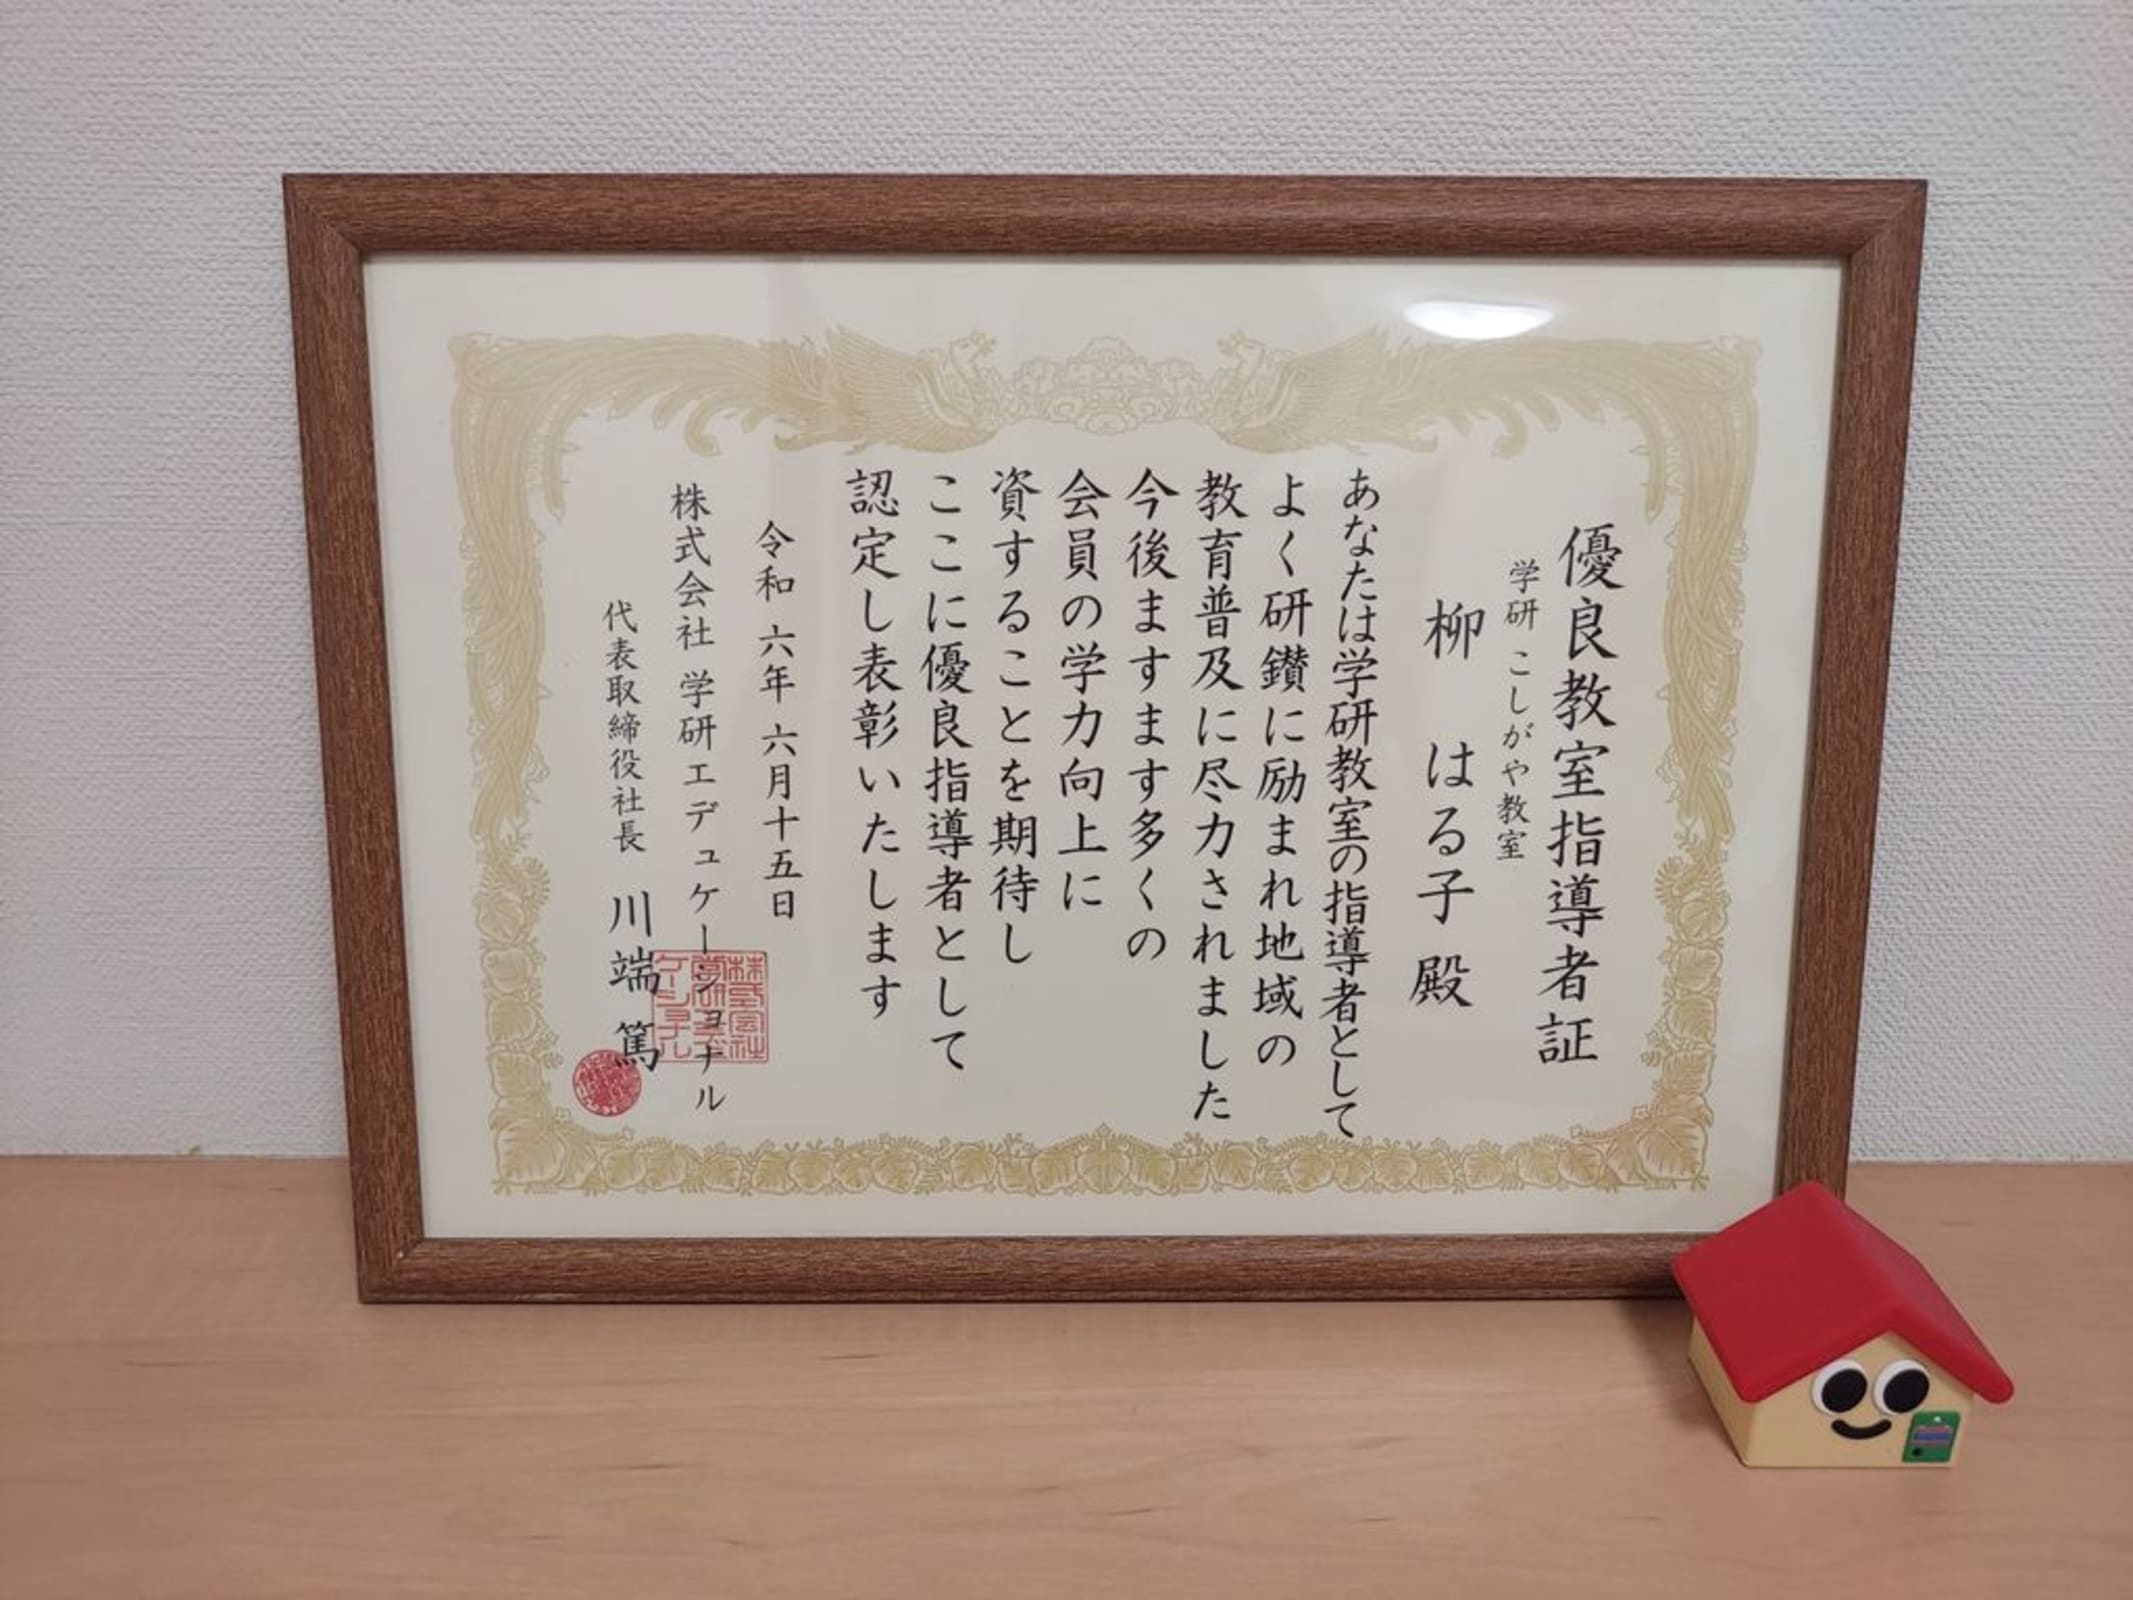 優良教室指導者証
学研 こしがや教室
柳 はる子 殿
あなたは学研教室の指導者として
よく研鑚に励まれ地域の
教育普及に尽力されました
今後ますます多くの
会員の学力向上に
資することを期待し
ここに優良指導者として
認定し表彰いたします
令和 六年 六月十五日
株式会社 学研エデュケーショナル
代表取締役社長 川端 篤
株式会社
学研エデュ
ケーショナル